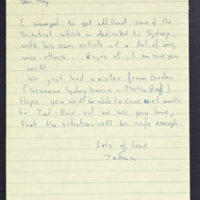 Dear May,
I managed to get additional issue of the
Scientist which is dedicated to Sydney,
with his own article and a lot of very
nice others. Enjoy it, I am sure you
will.
We just had a visitor from London
(Sydney Brenner Martin Raff)
Hope you will be able to come next month
to Tel-Aviv and we see you here,
that the situation will be safe enough.
Lots of love